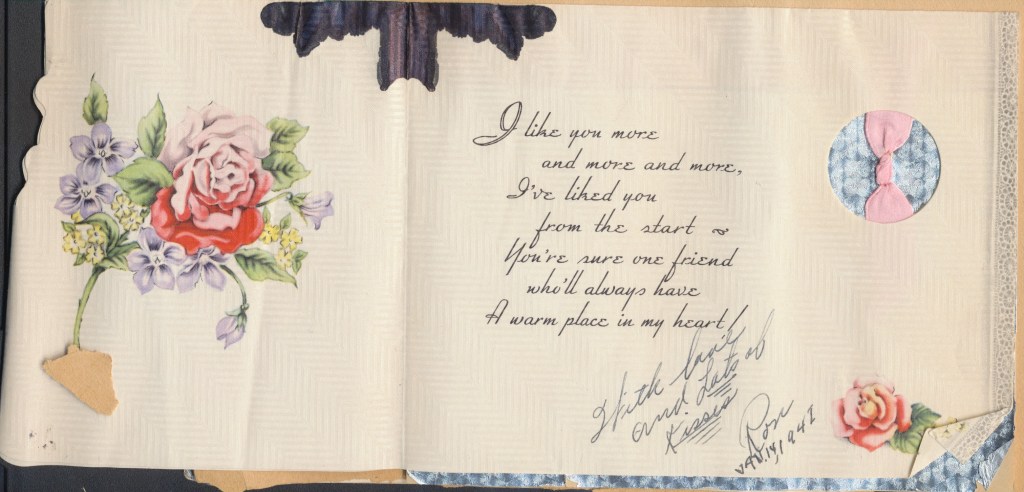 I like you more
and more and more,
I've liked you
from the start
You're sure one friend
who'll always have
A warm place in my heart!
With love
and Lots of
Kisses
Ron
1941